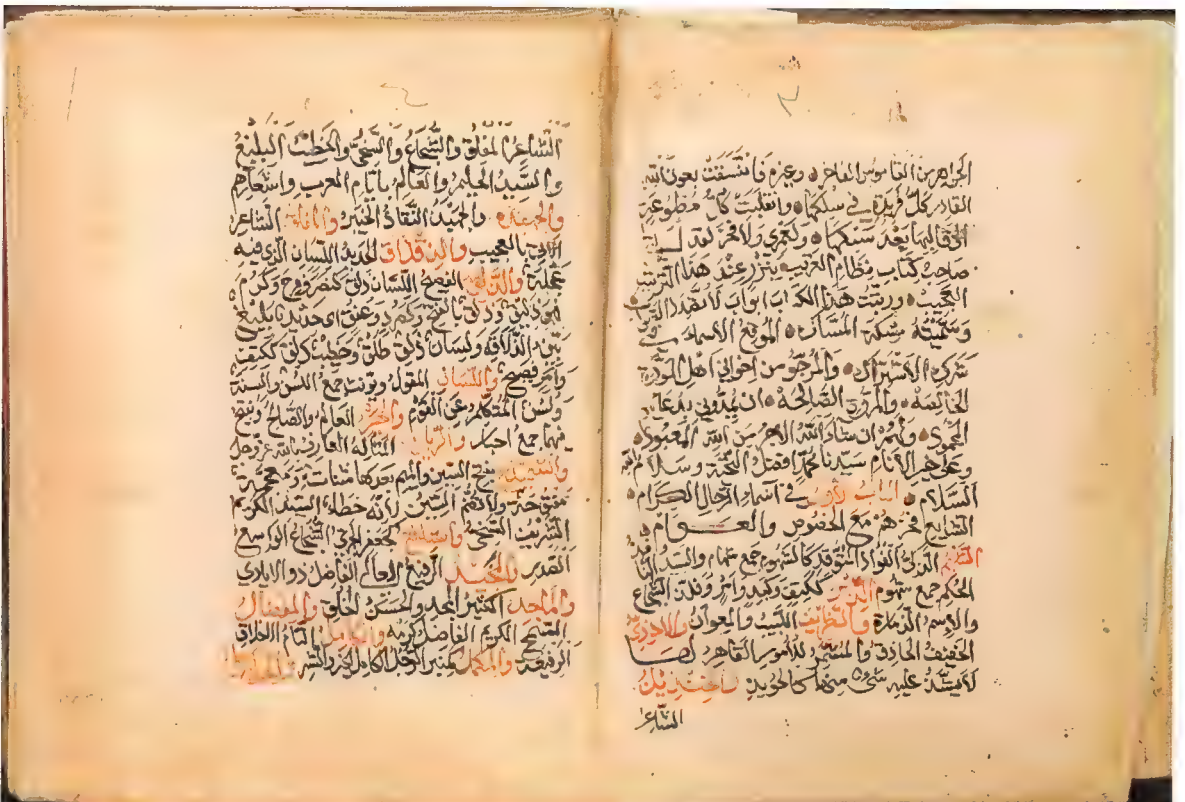 الجواهر من القاموس الفاخر وغيره فاتسقت بعون الله
القادر كل فريدة في سلكها وانقلبت كل مطوعة
الى قالبها بعد سبكها ولعمري ولا فخر لقد
صاحب كتاب نظام الغريب عند هذا الترتيب
العجيب ورتبت هذا الكتاب ابواب لا
وسميته الموقع الاسماء في
شرك الاشتراك والمرجو من اخواني اهل المودة
الخالصة والمروة الصالحة ان يمدوني بدعا
ولهم ان شاء الله الاجر من الله المعبود
وعلى خير الانام سيدنا محمد افضل التحية وسلام
السلام الباب الاول في اسماء الرجال الكرام
الشايع فخرهم مع الخصوص والعوام
الشهم الذكي الفؤاد المتوقد كالمشهوم جمع شهام والسيد النافذ
الحكم جمع شهوم الذمر ككيف وكبد وامر وفلز الشجاع
والاسم الذمارة والظريف اللبيب والمعوان والاحوزي
الخفيف الحاذق والمشمر للامور القاهر لها
لا يشذ عليه شيء منها كالحويذ والخنذيذ
الشاعر
الشاعر المفلق والشجاع والسخي والخطيب البليغ
والسيد الحليم والعالم بايام العرب واشعارهم
والجهبذ النقاد الخبير والمفلق الشاعر
الاتي بالعجيب الحديد اللسان الذي فيه
عجلة والذلق الفصيح اللسان ذلق كنصر وفرح وكرم
فهو ذليق وذلق بالفتح وكصرد وعنق اي حديد بليغ
بين الذلاقة ولسان ذلق طلق وخطيب ذلق ككيف
وامير فصيح واللسان المقول ويونث جمع السن والسنة
ولسن المتكلم عن القوم والحبر العالم والصالح ويفتح
فيهما جمع احبار والرباني المتاله العارف بالله عز وجل
والسميذع بفتح السين والميم بعدها مثناة تحت ومعجمة
مفتوحة ولا تضم السين لانه خطاء السيد الكريم
الشريف السخي كجعفر الجري الشجاع الواسع
الصدر والمجيد الرفيع العالي الفاضل ذو الايادي
والماجد الكثير المجد والحسن الخلق والمفضال
السمح الكريم الفاضل كرمه والكامل التام الاخلاق
الرفيعة والمكمل كمنبر الرجل الكامل للخير والشر